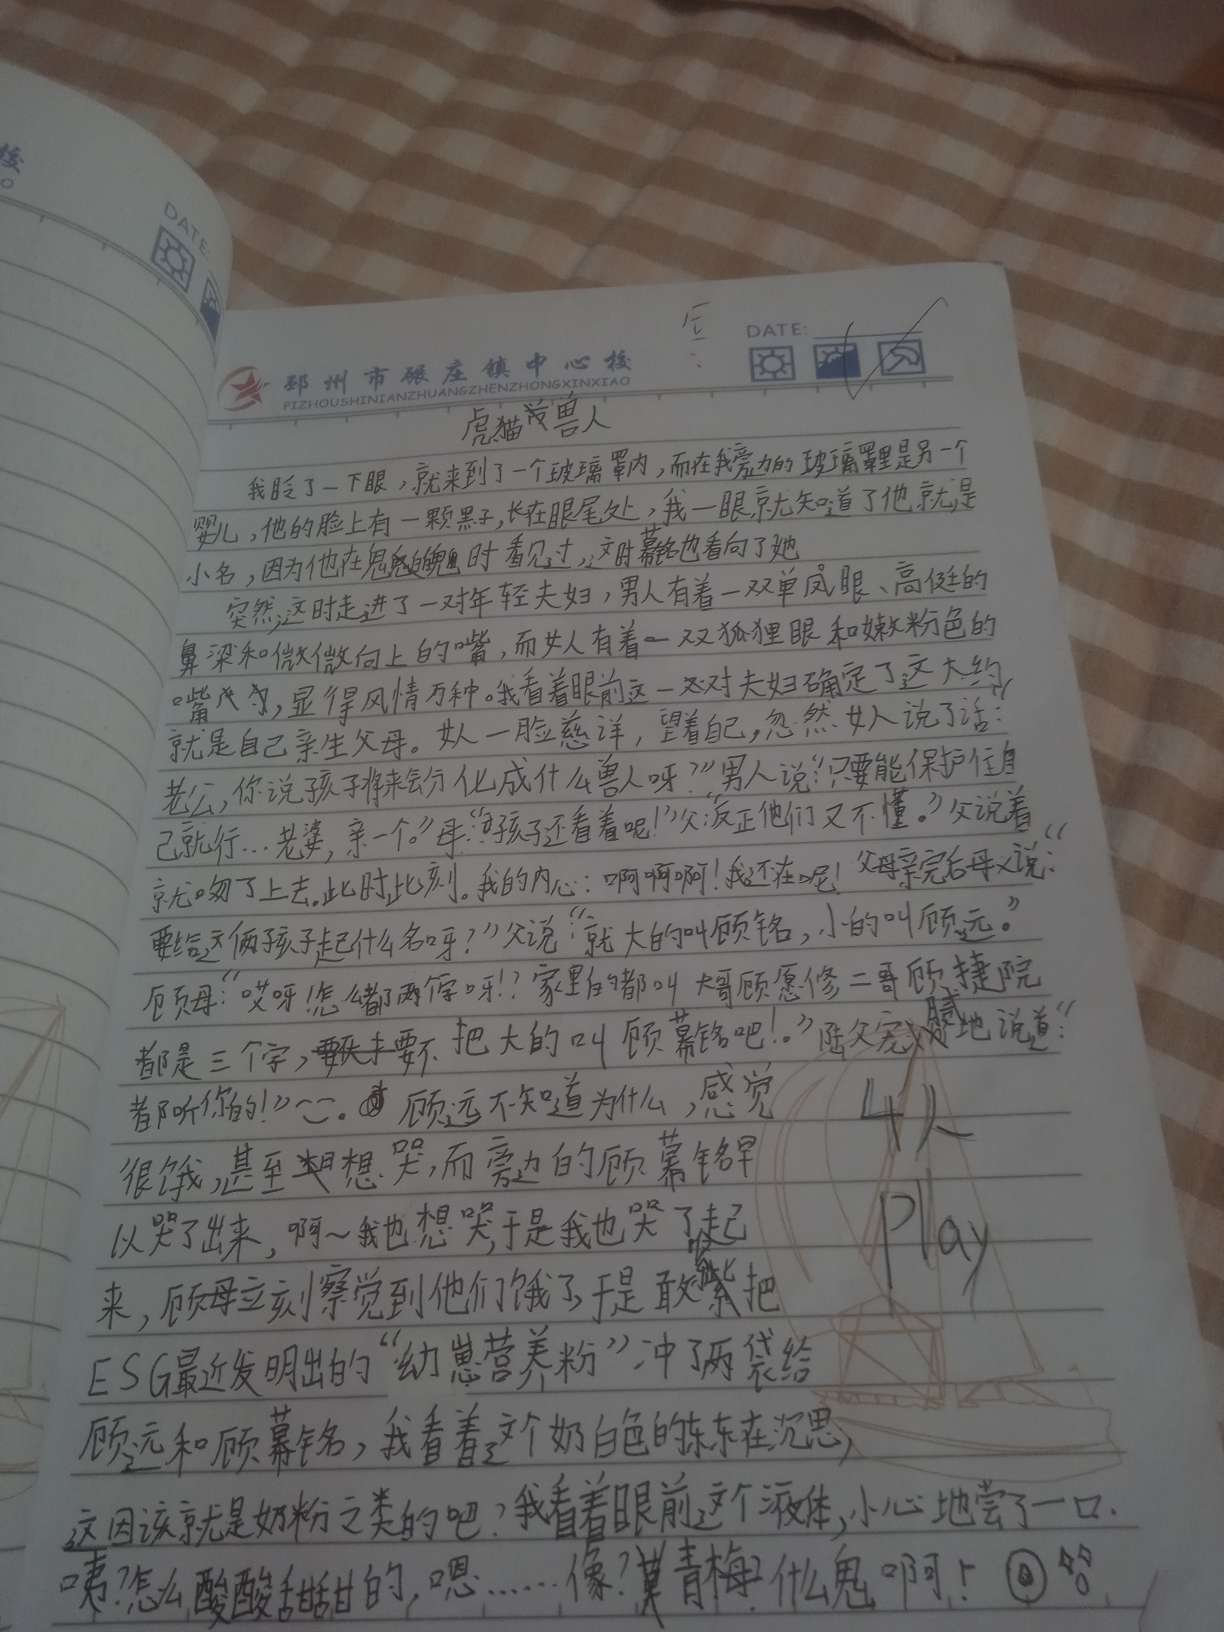 校
DATE:
DATE:
邳州市碾庄镇中心校
PIZHOUSHINIANZHUANGZHENZHONGXINXIAO
虎猫 兽人
我眨了一下眼，就来到了一个玻璃罩内，而在我旁边的玻璃罩里是另一个
婴儿，他的脸上有一颗黑子，长在眼尾处，我一眼就知道了他就是
小名，因为他在鬼魂时看见过，这时幕铭也看向了她
突然，这时走进了一对年轻夫妇，男人有着一双单凤眼、高挺的
鼻梁和微微向上的嘴，而女人有着一双狐狸眼和嫩粉色的
嘴 ，显得风情万种。我看着眼前这一对夫妇确定了这大约
就是自己亲生父母。女人一脸慈洋，望着自己，忽然女人说了话：“
老公，你说孩子将来会分化成什么兽人呀？”男人说：“只要能保护住自
己就行…老婆，亲一个。”母：“孩子还看着呢！”父：“反正他们又不懂。”父说着
就吻了上去。此时此刻。我的内心：啊啊啊！我还在呢！父母亲完后母又说：“
要给这俩孩子起什么名呀？”父说：“就大的叫顾铭，小的叫顾远。”
顾母：“哎呀！怎么都两个字呀！？家里的都叫大哥顾愿修二哥顾捷院
都是三个字，要不把大的叫顾幕铭吧！。”陆父宠腻地说道：“
都听你的！”。顾远不知道为什么，感觉
很饿，甚至想哭，而旁边的顾幕铭早
以哭了出来，啊～我也想哭，于是我也哭了起
来，顾母立刻察觉到他们饿了，于是敢紧把
ESG最近发明出的“幼崽营养粉”冲了两袋给
顾远和顾幕铭，我看着这个奶白色的东东在沉思，
这因该就是奶粉之类的吧？我看着眼前这个液体，小心地尝了一口.
咦？怎么酸酸甜甜的，嗯……像？青梅？什么鬼啊！
4人
Play